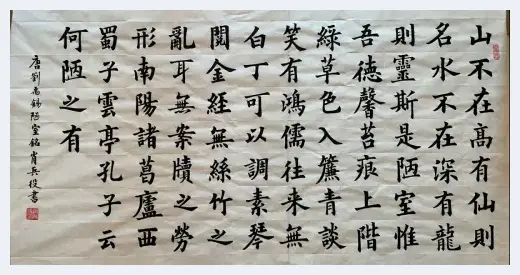 山不在高有仙則
名水不在深有龍
則靈斯是陋室惟
吾德馨苔痕上階
綠草色入簾青談
笑有鴻儒往來無
白丁可以調素琴
閱金經無絲竹之
亂耳無案牘之勞
形南陽諸葛廬西
蜀子雲亭孔子云
何陋之有
唐劉禹錫陋室銘肖兵役書